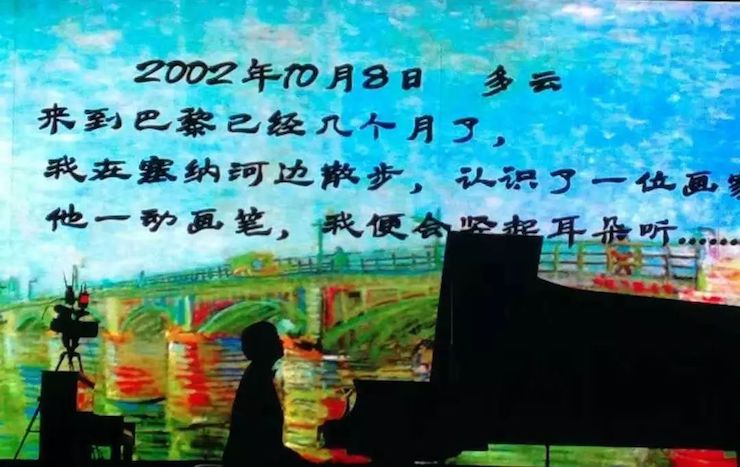 2002年10月8日 多云
来到巴黎已经几个月了，
我在塞纳河边散步，认识了一位画家
他一动画笔，我便会竖起耳朵听......